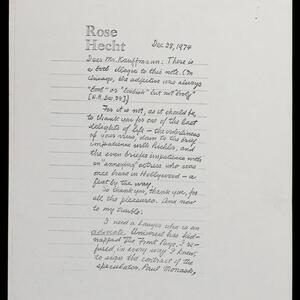 Rose
Hecht
Dec 28, 1974
Dear Mr. Kauffmann: There is
a both to this note. (In
Chicago, the adjective was always
"but not
For it is not, as it should be,
to thank you for one of the last
delights of life — the
of your views, down to the brief
impatience with and
the even briefer impatience with
an "annoying" actress who was
once brave in Hollywood — a
feat by the way.
So thank you, thank you, for
all the pleasures. And now
to my trouble.
I need a lawyer who is an
advocate. Universal has kid-
napped The Front Page. I re-
fused, in every way I knew,
to sign the contract of the
speculator, Paul Monash,